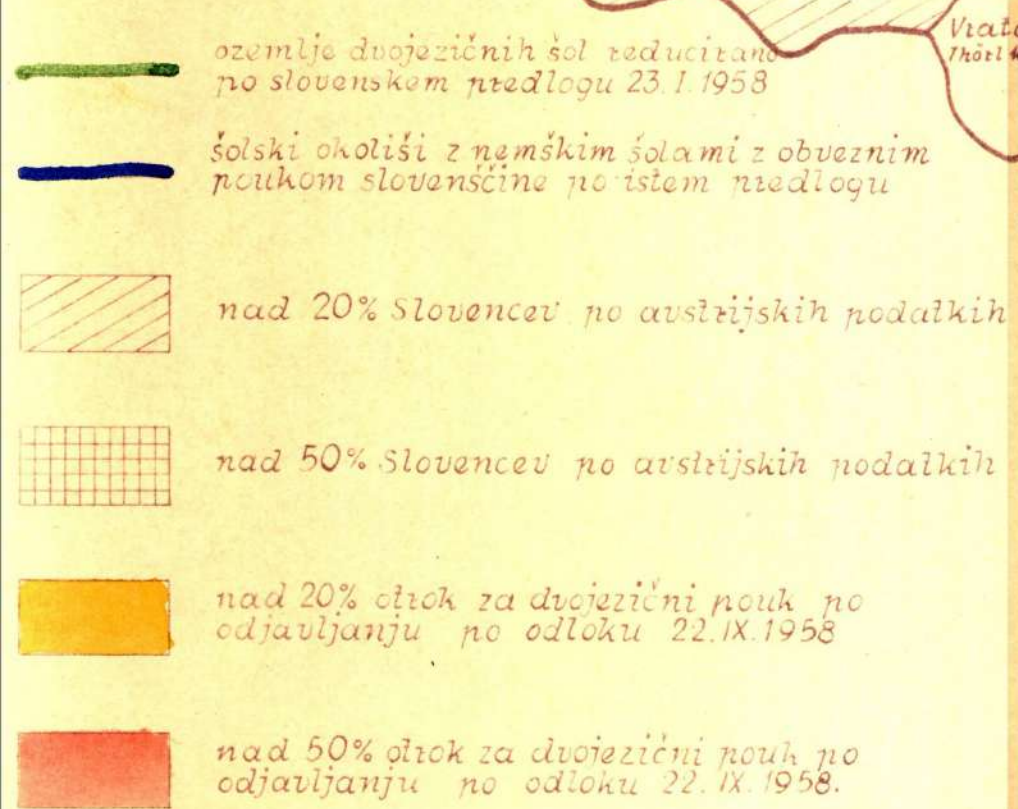 ozemlje dvojezičnih šol reducirano
po slovenskem predlogu 23. I. 1958
šolski okoliši z nemškim šolami z obveznim
poukom slovenščine po istem predlogu
nad 20% Slovencev po avstrijskih podatkih
nad 50% Slovencev po avstrijskih podatkih
nad 20% otrok za dvojezični pouk po
odjavljanju po odloku 22. IX. 1958
nad 50% otrok za dvojezični pouk po
odjavljanju po odloku 22. IX. 1958.
Thörl